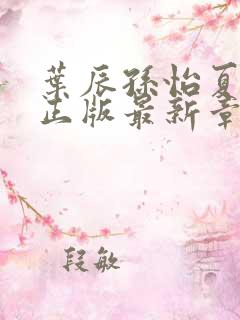 葉辰孫怡夏
正版最新章
段敏